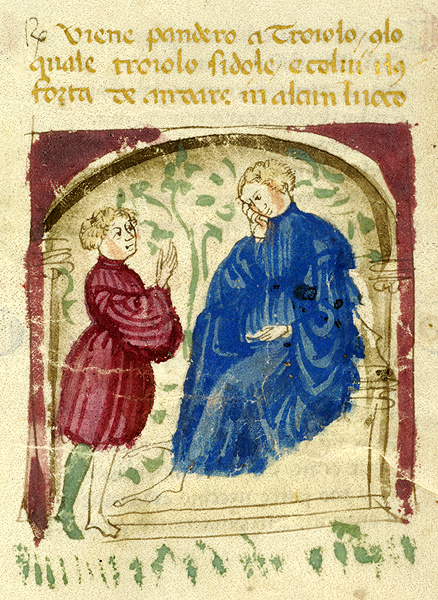 Viene pandero a Troiolo / alo
quale troiolo si dole / e colui ilo
forza de andare in alcun luoco